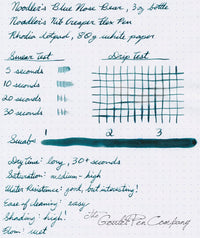 Noodler's Blue Nose Bear, 3oz bottle
Noodler's Nib Creaper Flex Pen
Rhodia dotpad, 80g white paper
Smear Test
Drip Test
5 seconds
10 seconds
20 seconds
30 seconds
Swabs
1 2 3
Dry time: long, 30+ seconds
Saturation: medium-high
Water Resistance: good, but interesting!
Ease of cleaning: easy
Shading: high!
Flow: wet
The Goulet Pen Company